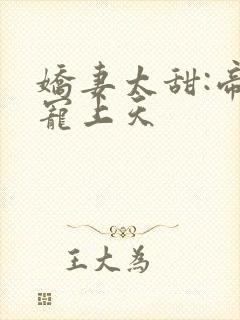 嬌妻太甜:帝
寵上天
王大為